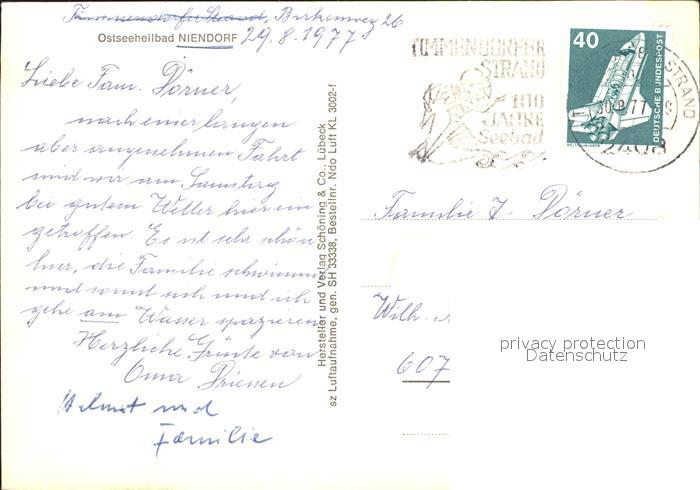 Timmendorfer Strand, Birkenweg 26
Ostseeheilbad NIENDORF 29.8.1977
Liebe Fam. Dörner,
nach einer langen
aber angenehmen Fahrt
sind wir am Samstag
bei gutem Wetter hier ein
getroffen. Es ist sehr schön
hier, die Familie schwimmt
und sonnt sich und ich
gehe am Wasser spazieren
Herzliche Grüße von
Oma
Helmut und
Familie
Hersteller und Verlag Schöning & Co., Lübeck
sz Luftaufnahme, gen. SH 33338, Bestellnr. Ndo Luft KL 3002-f
TIMMENDORFER
STRAND
100
JAHRE
Seebad
40
DEUTSCHE BUNDESPOST
STRAND
30.8.77
2408
Familie J. Dörner
Wilh.
607
privacy protection
Datenschutz